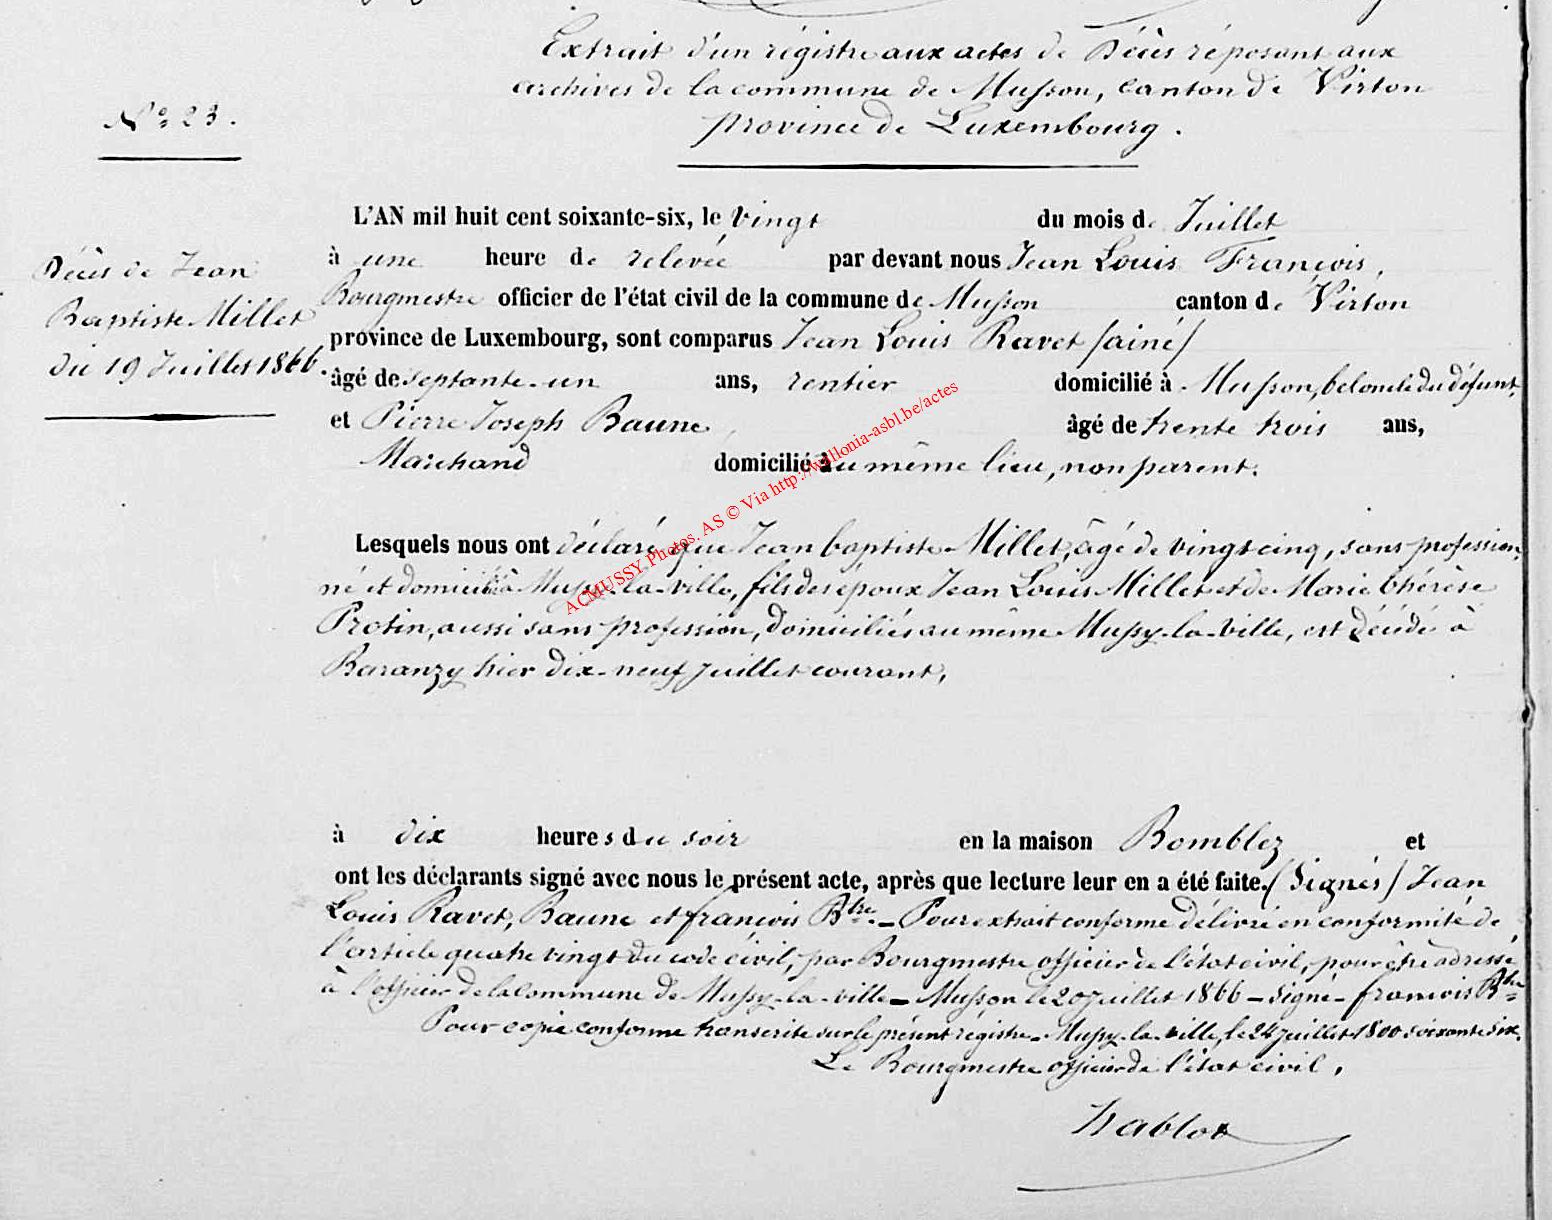 Extrait d'un régistre aux actes de Décès réposant aux
archives de la commune de Musson, canton de Virton
province de Luxembourg.
N° 23.
L'AN mil huit cent soixante-six, le vingt du mois de Juillet
à une heure de relevée par devant nous Jean Louis François,
Bourgmestre officier de l'état civil de la commune de Musson canton de Virton
province de Luxembourg, sont comparus Jean Louis Ravet (ainé)
âgé de septante-un ans, rentier domicilié à Musson, bel oncle du défunt,
et Pierre Joseph Baune, âgé de trente trois ans,
Marchand domicilié au même lieu, non parent.
Décès de Jean
Baptiste Millet
du 19 Juillet 1866.
Lesquels nous ont déclaré que Jean baptiste Millet, âgé de vingt cinq, sans profession,
né et domicilié à Mussy-la-ville, fils des époux Jean Louis Millet et de Marie thérèse
Protin, aussi sans profession, domiciliés au même Mussy-la-ville, est décédé à
Baranzy hier dix-neuf juillet courant,
à dix heures du soir en la maison Bomblez et
ont les déclarants signé avec nous le présent acte, après que lecture leur en a été faite. (Signés) Jean
Louis Ravet, Baune et françois Btre. – Pour extrait conforme délivré en conformité de
l'article quatre vingt du code civil, par Bourgmestre officier de l'état civil, pour être adressé
à l'officier de la Commune de Mussy-la-ville – Musson le 20 Juillet 1866 – signé – françois Btre
Pour copie conforme transcrite sur le présent régistre – Mussy-la-ville, le 24 juillet 1800 soixante six.
Le Bourgmestre officier de l'état civil,
hablot
ACMUSSY Photos. AS © Via http://wallonia-asbl.be/actes